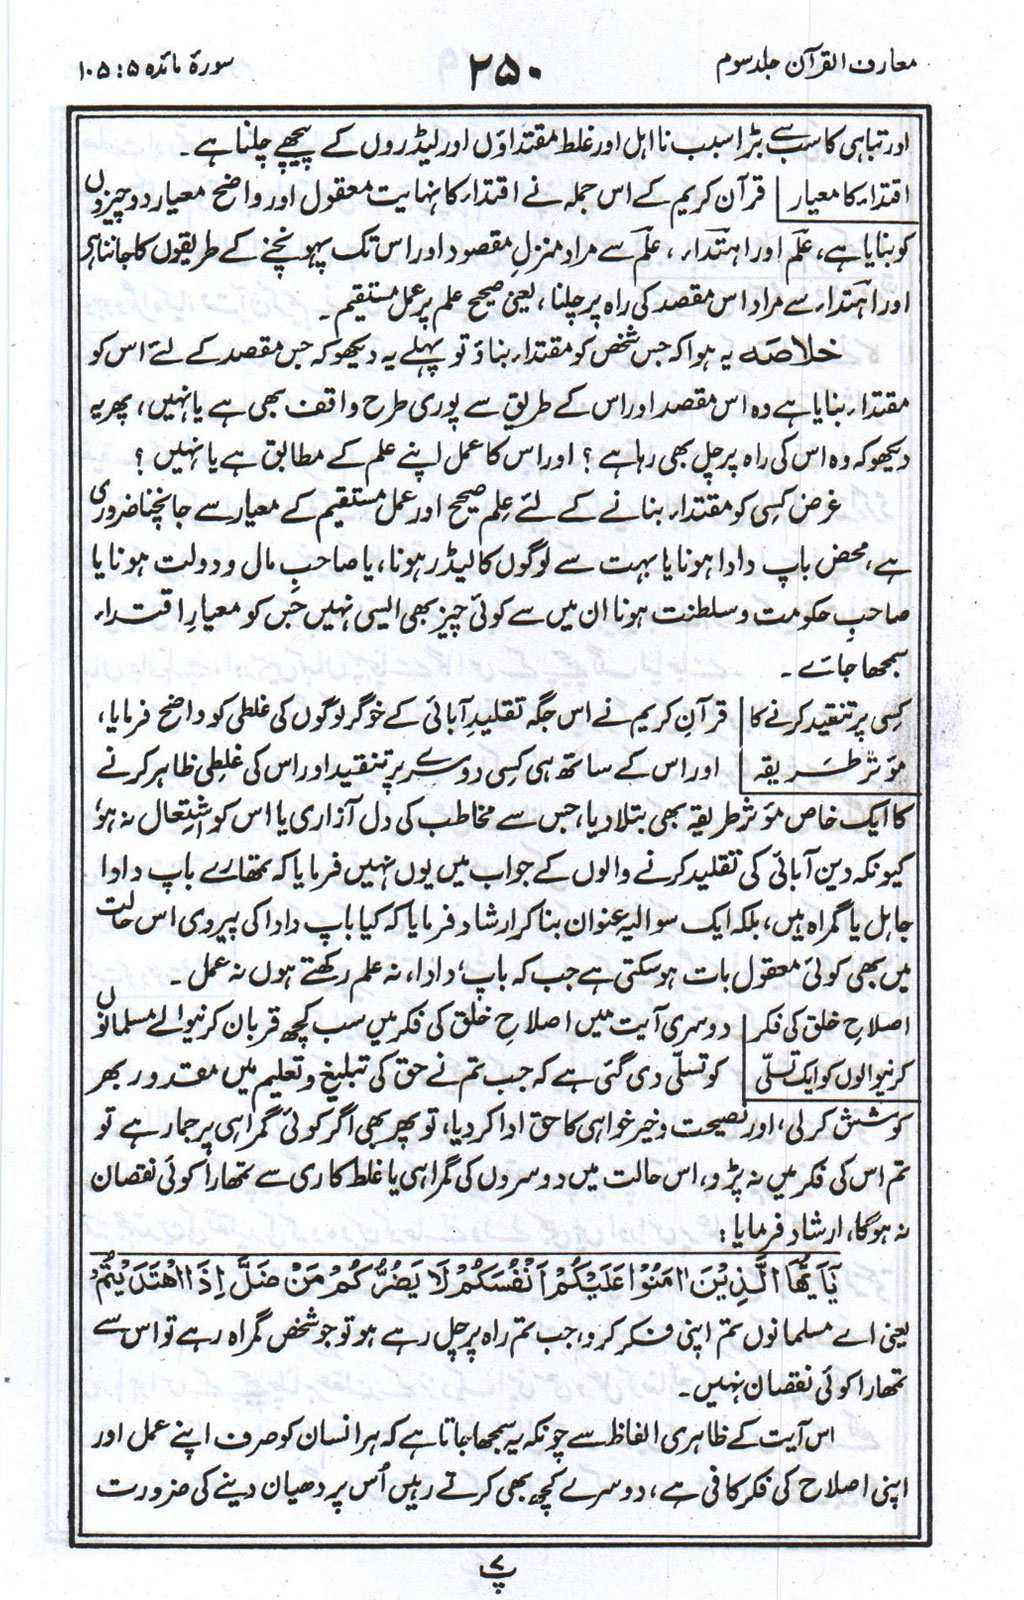 معارف القرآن جلد سوم
۲۵۰
سورۃ مائدہ ۵ : ۱۰۵
اور تباہی کا سب سے بڑا سبب نااہل اور غلط مقتداؤں اور لیڈروں کے پیچھے چلنا ہے۔
اقتدار کا معیار قرآن کریم کے اس جملہ نے اقتدار کا نہایت معقول اور واضح معیار دو چیزوں
کو بنایا ہے، علم اور اہتدار، علم سے مراد منزلِ مقصود اور اس تک پہونچنے کے طریقوں کا جاننا ہے
اور اہتدار سے مراد اس مقصد کی راہ پر چلنا، یعنی صحیح علم پر عمل مستقیم۔
خلاصہ یہ ہوا کہ جس شخص کو مقتدار بناؤ تو پہلے یہ دیکھو کہ جس مقصد کے لئے اس کو
مقتدار بنایا ہے وہ اس مقصد اور اس کے طریق سے پوری طرح واقف بھی ہے یا نہیں، پھر یہ
دیکھو کہ وہ اس کی راہ پر چل بھی رہا ہے؟ اور اس کا عمل اپنے علم کے مطابق ہے یا نہیں؟
غرض کسی کو مقتدار بنانے کے لئے علِم صحیح اور عمل مستقیم کے معیار سے جانچنا ضروری
ہے، محض باپ دادا ہونا یا بہت سے لوگوں کا لیڈر ہونا، یا صاحبِ مال و دولت ہونا یا
صاحبِ حکومت و سلطنت ہونا ان میں سے کوئی چیز بھی ایسی نہیں جس کو معیارِ اقتدار
سمجھا جائے۔
کسی پر تنقید کرنے کا قرآن کریم نے اس جگہ تقلیدِ آبائی کے خوگر لوگوں کی غلطی کو واضح فرمایا،
مؤثر طریقہ اور اس کے ساتھ ہی کسی دوسرے پر تنقید اور اس کی غلطی ظاہر کرنے
کا ایک خاص مؤثر طریقہ بھی بتلا دیا، جس سے مخاطب کی دل آزاری یا اس کو اشتعال نہ ہو،
کیونکہ دین آبائی کی تقلید کرنے والوں کے جواب میں یوں نہیں فرمایا کہ تمھارے باپ دادا
جاہل یا گمراہ ہیں، بلکہ ایک سوالیہ عنوان بنا کر ارشاد فرمایا کہ کیا باپ دادا کی پیروی اس حالت
میں بھی کوئی معقول بات ہو سکتی ہے جب کہ باپ، دادا، نہ علم رکھتے ہوں نہ عمل۔
اصلاح خلق کی فکر دوسری آیت میں اصلاحِ خلق کی فکر میں سب کچھ قربان کرنیوالے مسلمانوں
کرنیوالوں کو ایک تسلّی کو تسلّی دی گئی ہے کہ جب تم نے حق کی تبلیغ و تعلیم میں مقدور بھر
کوشش کرلی، اور نصیحت و خیرخواہی کا حق ادا کر دیا، تو پھر بھی اگر کوئی گمراہی پر جما رہے تو
تم اس کی فکر میں نہ پڑو، اس حالت میں دوسروں کی گمراہی یا غلط کاری سے تمھارا کوئی نقصان
نہ ہوگا، ارشاد فرمایا:
يَٰٓأَيُّهَا الَّذِيْنَ اٰمَنُوْا عَلَيْكُمْ اَنْفُسَكُمْ لَا يَضُرُّكُمْ مَنْ ضَلَّ اِذَا اهْتَدَيْتُمْ،
یعنی اے مسلمانوں تم اپنی فکر کرو، جب تم راہ پر چل رہے ہو تو جو شخص گمراہ رہے تو اس سے
تمھارا کوئی نقصان نہیں۔
اس آیت کے ظاہری الفاظ سے چونکہ یہ سمجھا جاتا ہے کہ ہر انسان کو صرف اپنے عمل اور
اپنی اصلاح کی فکر کافی ہے، دوسرے کچھ بھی کرتے رہیں اُس پر دھیان دینے کی ضرورت
پ ۷